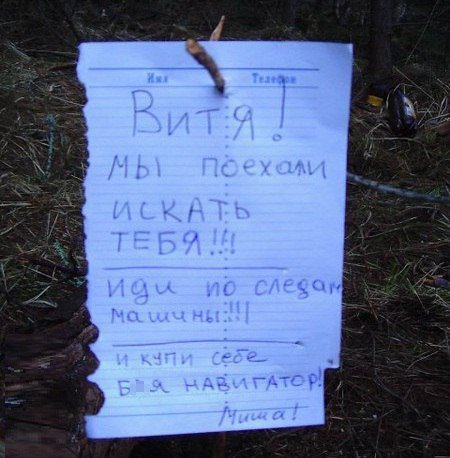 Имя Телефон
Витя!
мы поехали
искать
тебя!!!
иди по следам
машины!!!
и купи себе
навигатор!
Миша!